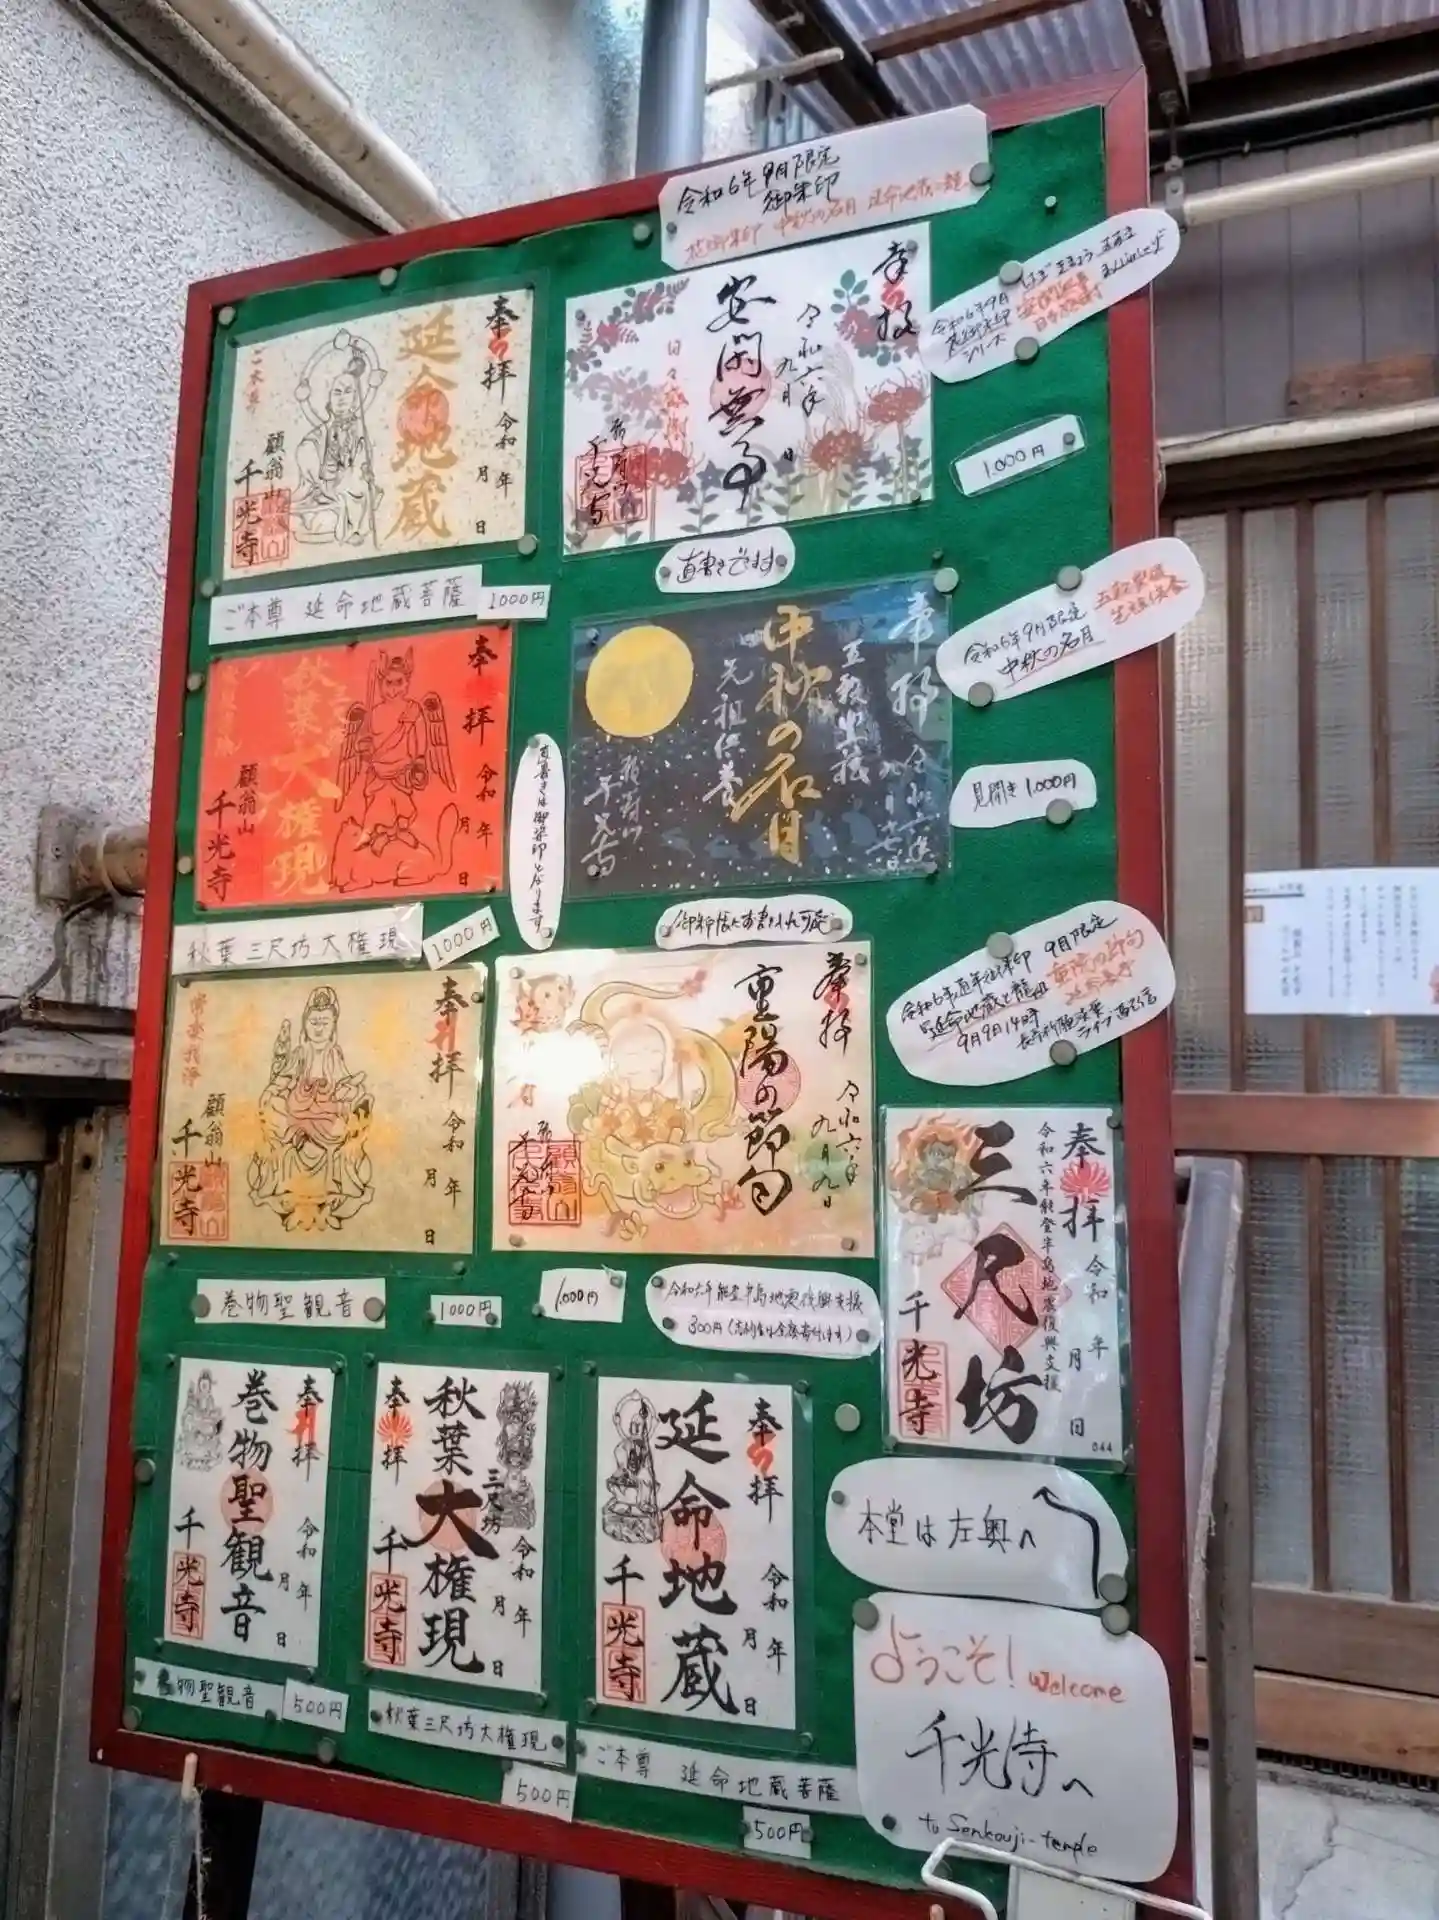 令和6年9月限定
御朱印
花御朱印 中秋の名月 延命地蔵と龍
奉拝
延命地蔵
令和 年 月 日
ご本尊
願翁山
千光寺
ご本尊 延命地蔵菩薩
1000円
奉拝
令和六年
九月 日
安閑無事
日々感謝
千光寺
令和6年9月
花御朱印
シリーズ
安閑無事
日々感謝
1.000円
直書きできます
奉拝
秋葉大権現
令和 年 月 日
願翁山
千光寺
秋葉三尺坊大権現
1000円
直書きは御朱印となります
奉拝
五穀豊穣
中秋の名月
元祖供養
千光寺
令和6年9月限定
中秋の名月
五穀豊穣
見開き 1.000円
奉拝
令和 年 月 日
常楽我浄
願翁山
千光寺
巻物聖観音
1000円
奉拝
令和六年
九月九日
重陽の節句
千光寺
1.000円
9月限定
重陽の節句
延命地蔵と龍
9月9日14時
ライブ配信
令和六年能登半島地震復興支援
300円
奉拝
令和 年 月 日
令和六年能登半島地震復興支援
三尺坊
千光寺
044
奉拝
巻物聖観音
令和 年 月 日
千光寺
物聖観音
500円
奉拝
秋葉大権現
三尺坊
令和 年 月 日
千光寺
秋葉三尺坊大権現
500円
奉拝
延命地蔵
令和 年 月 日
千光寺
ご本尊 延命地蔵菩薩
500円
本堂は左奥へ
ようこそ! Welcome
千光寺へ
to Senkouji-temple